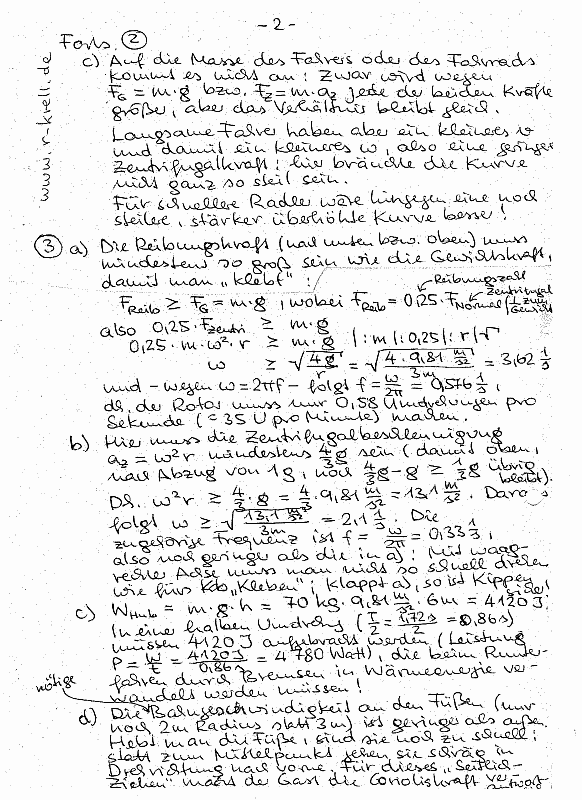 - 2 -
Forts. ②
www.r-krell.de
c) Auf die Masse des Fahrers oder des Fahrrads
kommt es nicht an: Zwar wird wegen
F_G = m·g bzw. F_Z = m·a_z jede der beiden Kräfte
größer, aber das Verhältnis bleibt gleich.
Langsame Fahrer haben aber ein kleineres v
und damit ein kleineres ω, also eine geringere
Zentrifugalkraft: hier bräuchte die Kurve
nicht ganz so steil sein.
Für schnellere Radler wäre hingegen eine noch
steilere, stärker überhöhte Kurve besser!
③ a) Die Reibungskraft (nach unten bzw. oben) muss
mindestens so groß sein wie die Gewichtskraft,
damit man "klebt":
Reibungszahl
F_Reib ≥ F_G = m·g, wobei F_Reib = 0,25·F_Normal
Zentrifugal (⊥ zum Gewicht
also 0,25·F_Zentri ≥ m·g
0,25·m·ω²·r ≥ m·g |:m |:0,25 |:r |√
ω ≥ √(4g/r) = √(4·9,81 m/s² / 3m) = 3,62 1/s
und - wegen ω = 2πf - folgt f = ω/2π = 0,576 1/s,
dh. der Rotor muss nur 0,58 Umdrehungen pro
Sekunde (= 35 U pro Minute) machen.
b) Hier muss die Zentrifugalbeschleunigung
a_z = ω²r mindestens 4/3 g sein (damit oben,
nach Abzug von 1g, noch 4/3 g - g ≥ 1/3 g übrig
bleibt).
Dh. ω²r ≥ 4/3·g = 4/3·9,81 m/s² = 13,1 m/s². Daraus
folgt ω ≥ √(13,1 m/s² / 3m) = 2,1 1/s. Die
zugehörige Frequenz ist f = ω/2π = 0,33 1/s,
also noch geringer als die in a)! Mit waag-
rechter Achse muss man nicht so schnell drehen
wie fürs "Kleben"; klappt a), so ist Kippen
c) W_Hub = m·g·h = 70 kg·9,81 m/s²·6m = 4120 J.
In einer halben Umdrehung (T/2 = 1,72s/2 = 0,86s)
müssen 4120 J aufgebracht werden (Leistung
P = W/t = 4120J/0,86s = 4780 Watt), die beim Runter-
fahren durch Bremsen in Wärmeenergie ver-
wandelt werden müssen!
nötige
d) Die Bahngeschwindigkeit an den Füßen (nur
noch 2m Radius statt 3m) ist geringer als außen.
Hebt man die Füße, sind sie noch zu schnell:
statt zum Mittelpunkt gehen sie schräg in
Drehrichtung nach vorne. Für dieses "Seitlich-
Ziehen" macht der Gast die Corioliskraft